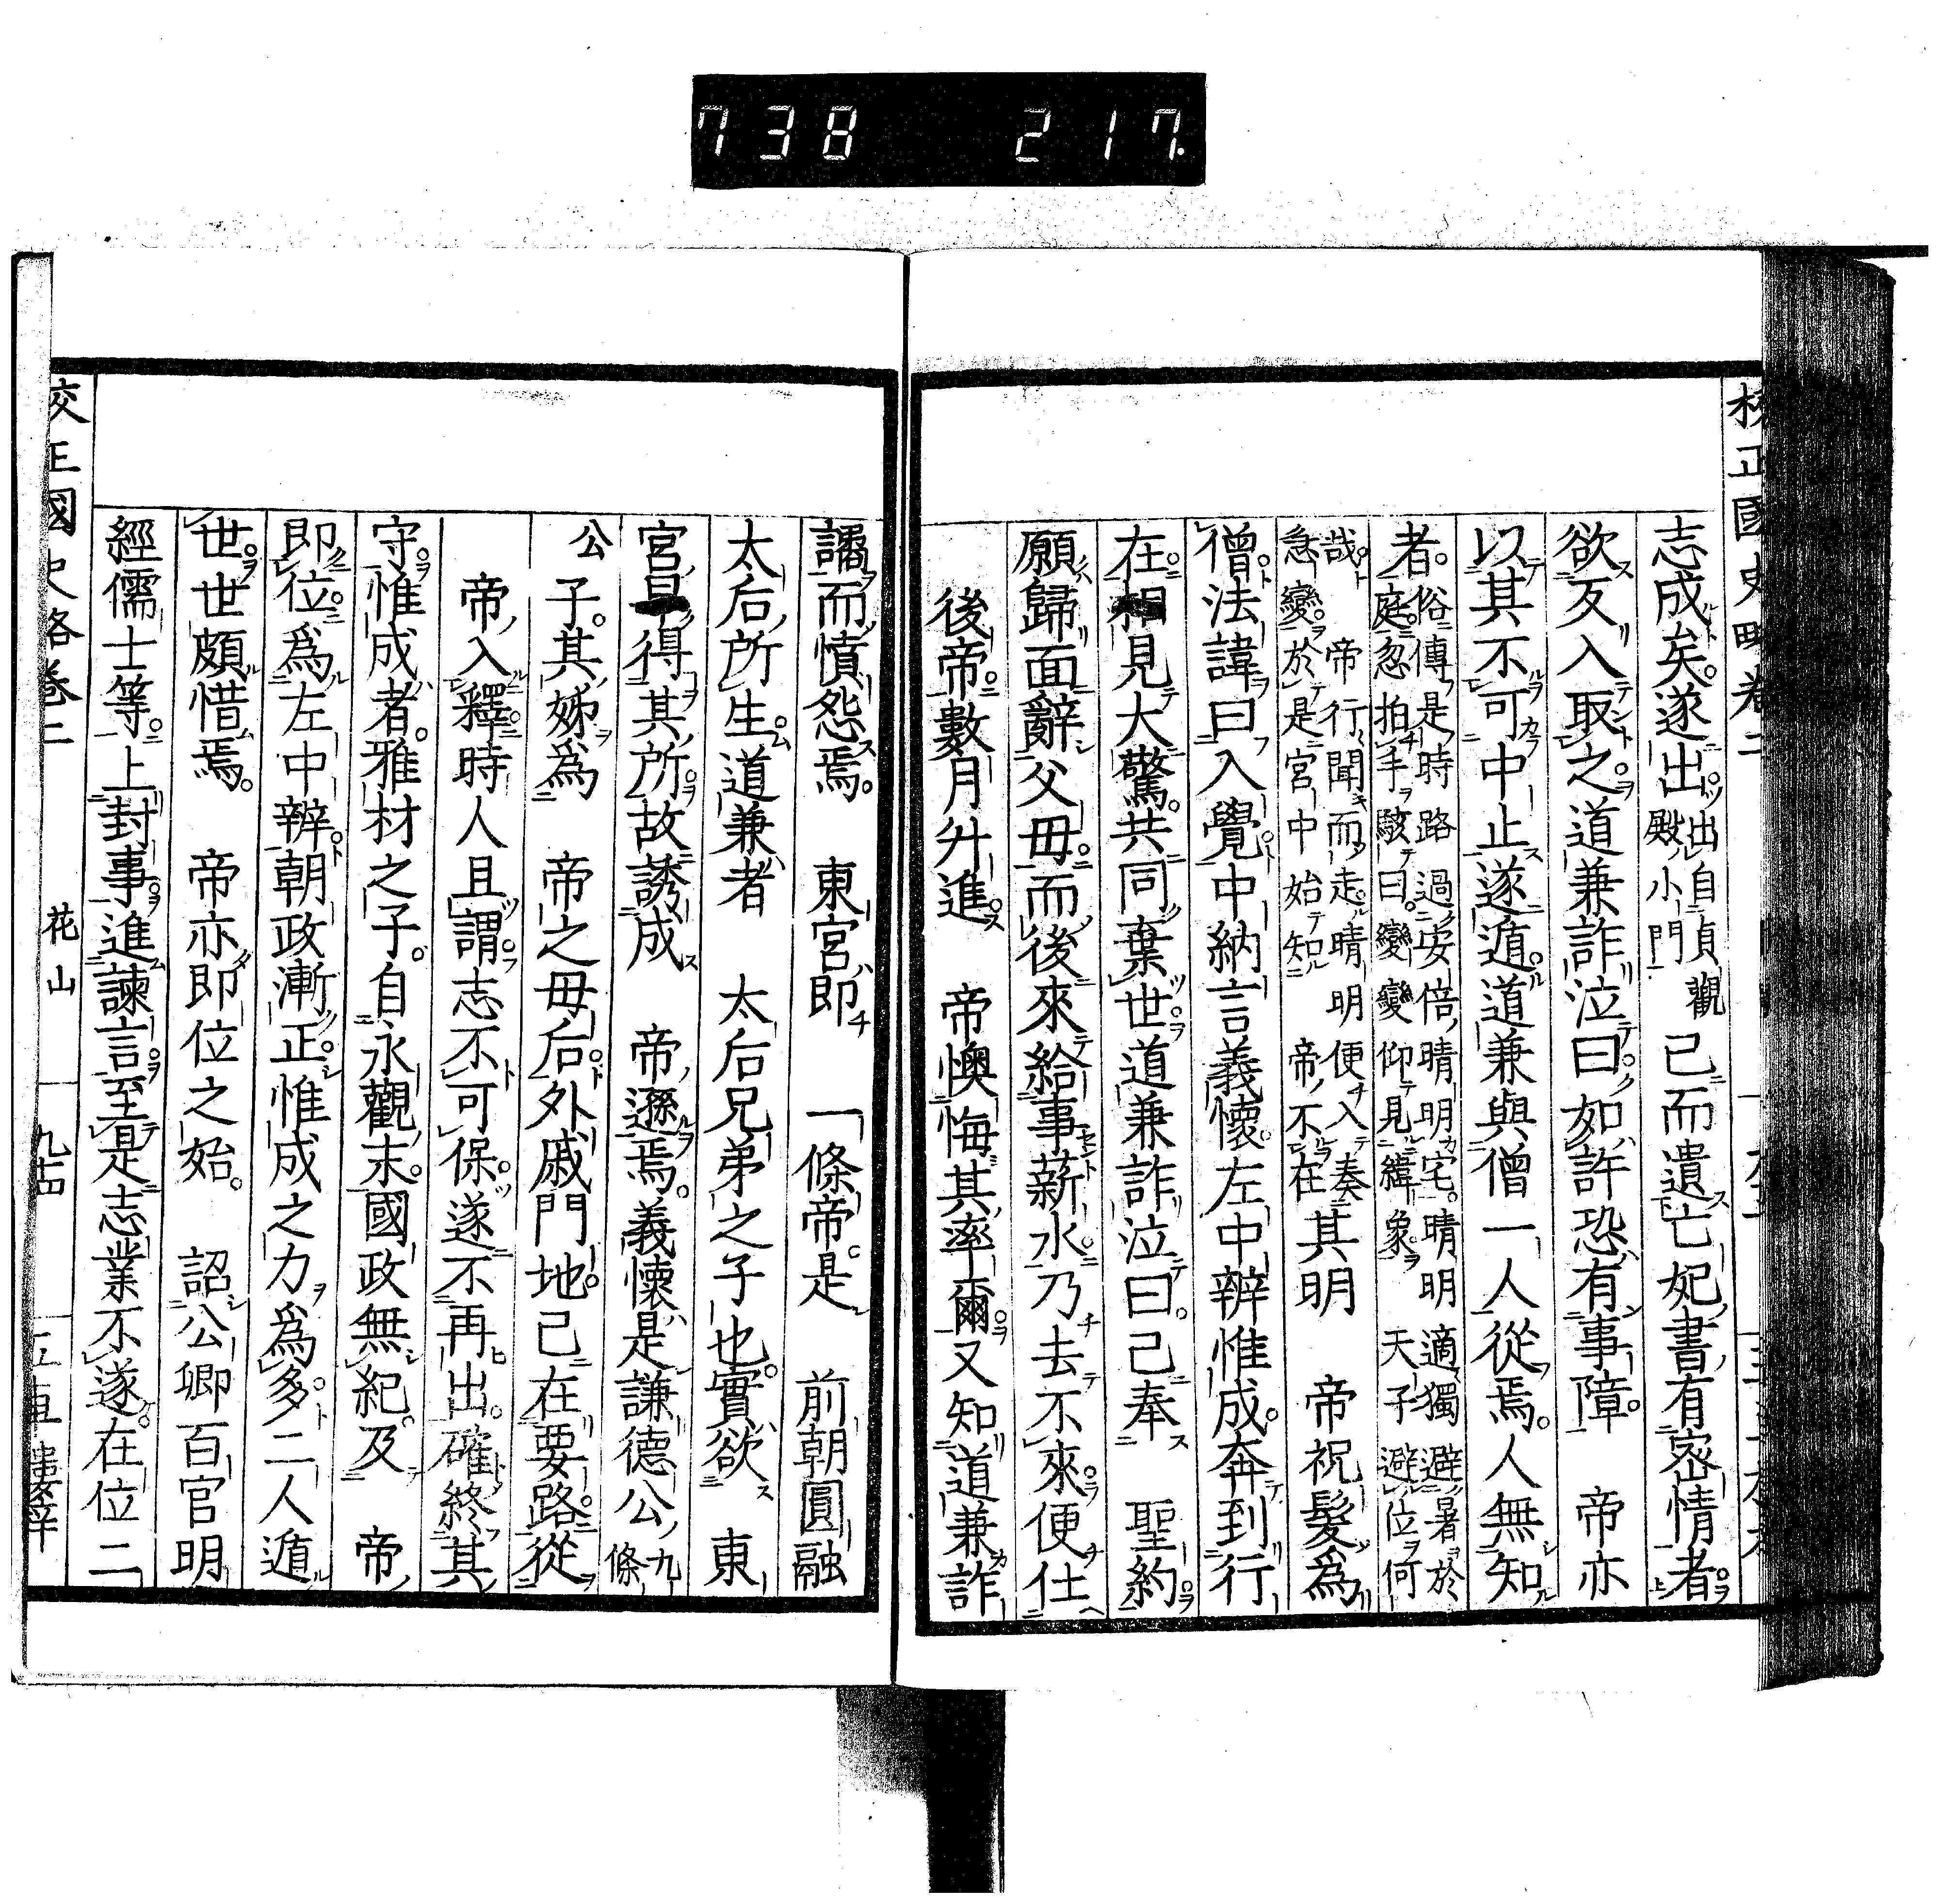 738 217.
志成矣遂出出自貞觀殿小門已而遺亡妃書有密情者
欲反入取之道兼詐泣曰如許恐有事障 帝亦
以其不可中止遂遁道兼與僧一人從焉人無知
者俗傳是時路過安倍晴明宅晴明適獨避暑於庭忽拍手駭曰變變仰見緯象天子避位何
哉 帝行聞而走晴明便入奏急變於是宮中始知 帝不在其明 帝祝髮爲
僧法諱曰入覺中納言義懷左中辨惟成奔到行
在相見大驚共同棄世道兼詐泣曰己奉 聖約
願歸面辭父母而後來給事薪水乃去不來便仕
後帝數月升進 帝懊悔其率爾又知道兼詐
譎而憤怨焉 東宮即 一條帝是 前朝圓融
太后所生道兼者 太后兄弟之子也實欲 東
宮早得其所故誘成 帝遜焉義懷是謙德公九條
公子其姊爲 帝之母后外戚門地己在要路從
帝入釋時人且謂志不可保遂不再出確終其
守惟成者雅材之子自永觀末國政無紀及 帝
即位爲左中辨朝政漸正惟成之力爲多二人遁
世世頗惜焉 帝亦即位之始 詔公卿百官明
經儒士等上封事進諫言至是志業不遂在位二
校正國史略卷二 花山